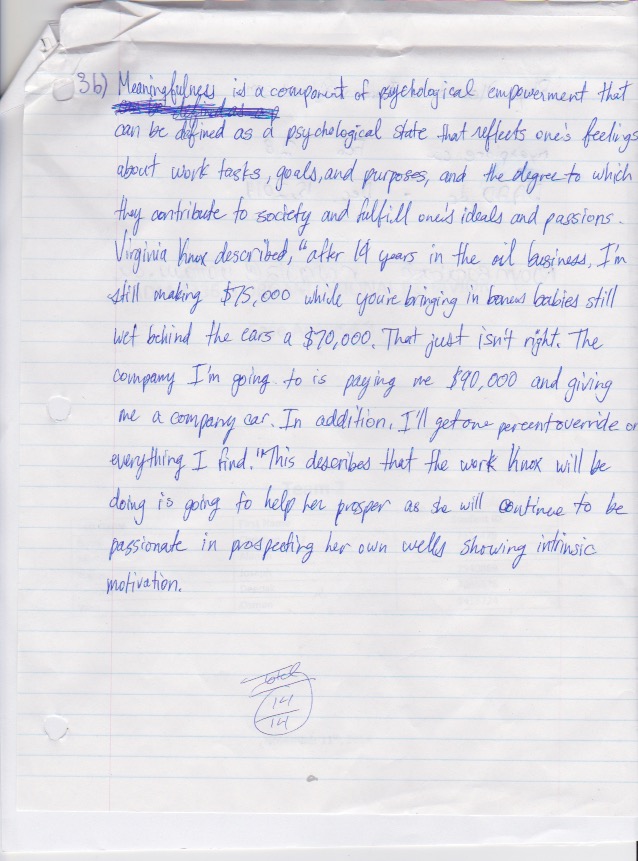 3b) Meaningfulness is a component of psychological empowerment that
can be defined as a psychological state that reflects one's feelings
about work tasks, goals, and purposes, and the degree to which
they contribute to society and fulfill one's ideals and passions.
Virginia Knox described, "after 19 years in the oil business, I'm
still making $75,000 while you're bringing in babies still
wet behind the ears a $70,000. That just isn't right. The
company I'm going to is paying me $90,000 and giving
me a company car. In addition, I'll get one percent override on
everything I find." This describes that the work Knox will be
doing is going to help her prosper as she will continue to be
passionate in prospecting her own wells showing intrinsic
motivation.
14
14